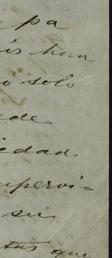 pa
is han
o solo
ede
iedad
supervi-
su
tas que